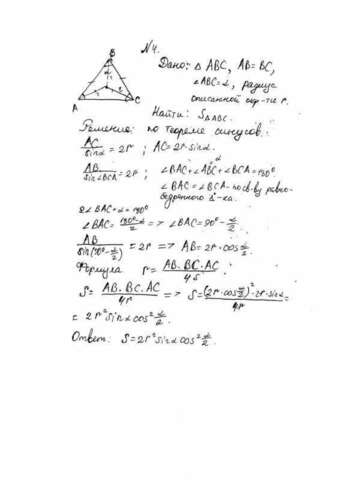 №4.
Дано: △ ABC, AB=BC,
∠ABC=α, радиус
описанной окр-ти r.
Найти: S△ABC.
B
α
r
r
A
C
Решение: по теореме синусов:
AC/sinα = 2r ; AC=2r·sinα.
AB/sin∠BCA = 2r ; ∠BAC+∠ABC+∠BCA=180°
α
∠BAC=∠BCA - по св-ву равно-
бедренного △-ка.
2∠BAC+α=180°
∠BAC= (180°-α)/2 => ∠BAC=90°-α/2
AB/sin(90°-α/2) = 2r => AB=2r·cos α/2
Формула r= AB·BC·AC/4S :
S= AB·BC·AC/4r => S= (2r·cos α/2)²·2r·sinα/4r =
= 2r²sinα cos² α/2.
Ответ: S=2r²sinα cos² α/2.